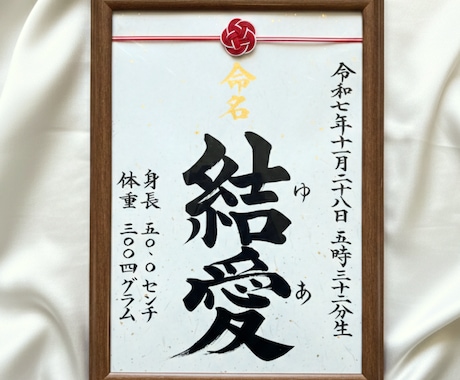 令和七年十一月二十八日 五時三十二分生
命名
結愛
ゆあ
身長 五〇、〇センチ
体重 三〇〇四グラム